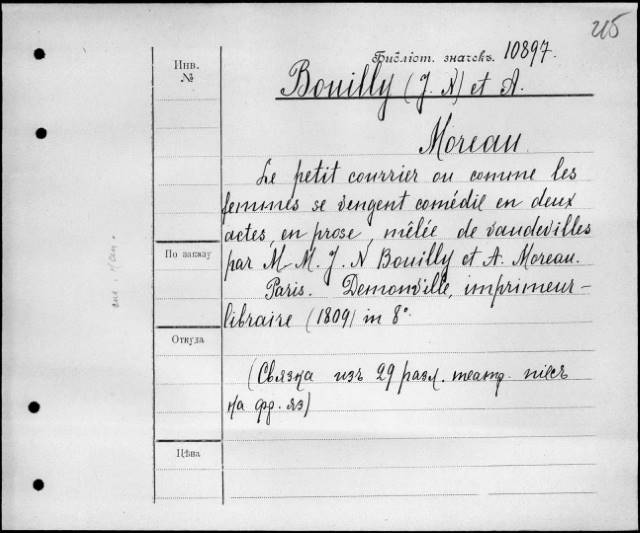 215
Инв.
№
Библіот. значекъ. 10897.
Bouilly (J. N) et A.
Moreau
Le petit courrier ou comme les
femmes se vengent comédie en deux
actes, en prose, mêlée de vaudevilles
По заказу
par M M. J. N Bouilly et A. Moreau.
Paris. Demonville, imprimeur-
libraire (1809) in 8°
Откуда
(Связка изъ 29 разл. театр. піесъ
на фр. яз)
Цѣна